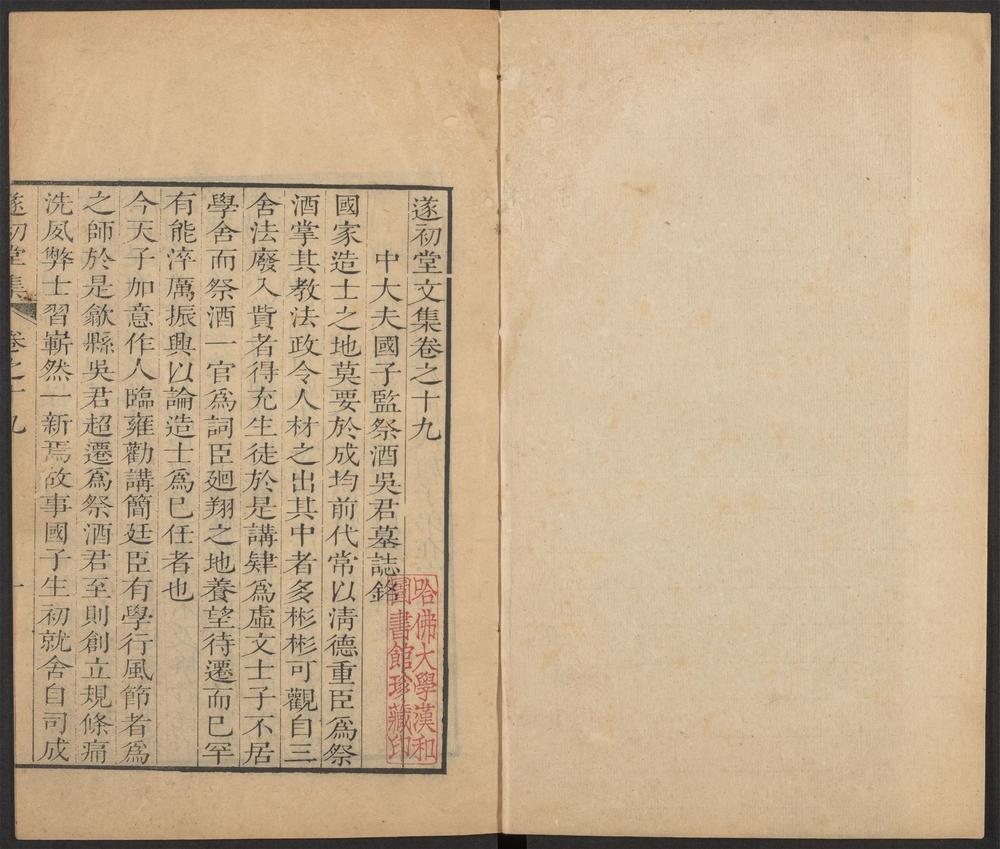 遂初堂文集卷之十九
中大夫國子監祭酒吳君墓誌銘
國家造士之地莫要於成均前代常以清德重臣爲祭
酒掌其教法政令人材之出其中者多彬彬可觀自三
舍法廢入貲者得充生徒於是講肄爲虛文士子不居
學舍而祭酒一官爲詞臣廻翔之地養望待遷而已罕
有能淬厲振興以論造士爲已任者也
今天子加意作人臨雍勸講簡廷臣有學行風節者爲
之師於是歙縣吳君超遷爲祭酒君至則創立規條痛
洗夙弊士習嶄然一新焉故事國子生初就舍自司成
遂初堂集 卷之十九 一
哈佛大學漢和
圖書館珍藏印